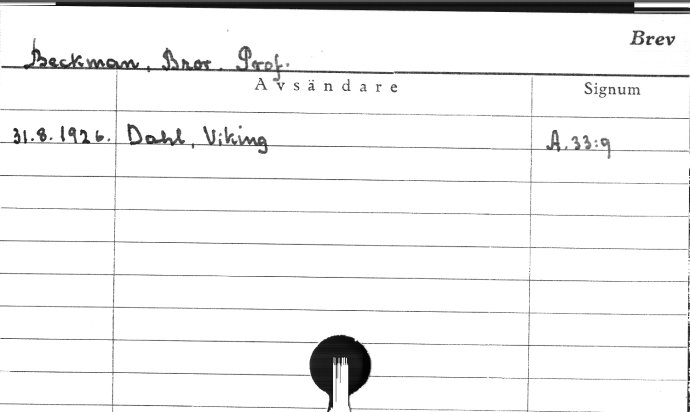 Brev
Beckman, Bror. Prof.
Avsändare Signum
31.8.1926. Dahl, Viking A.33:9